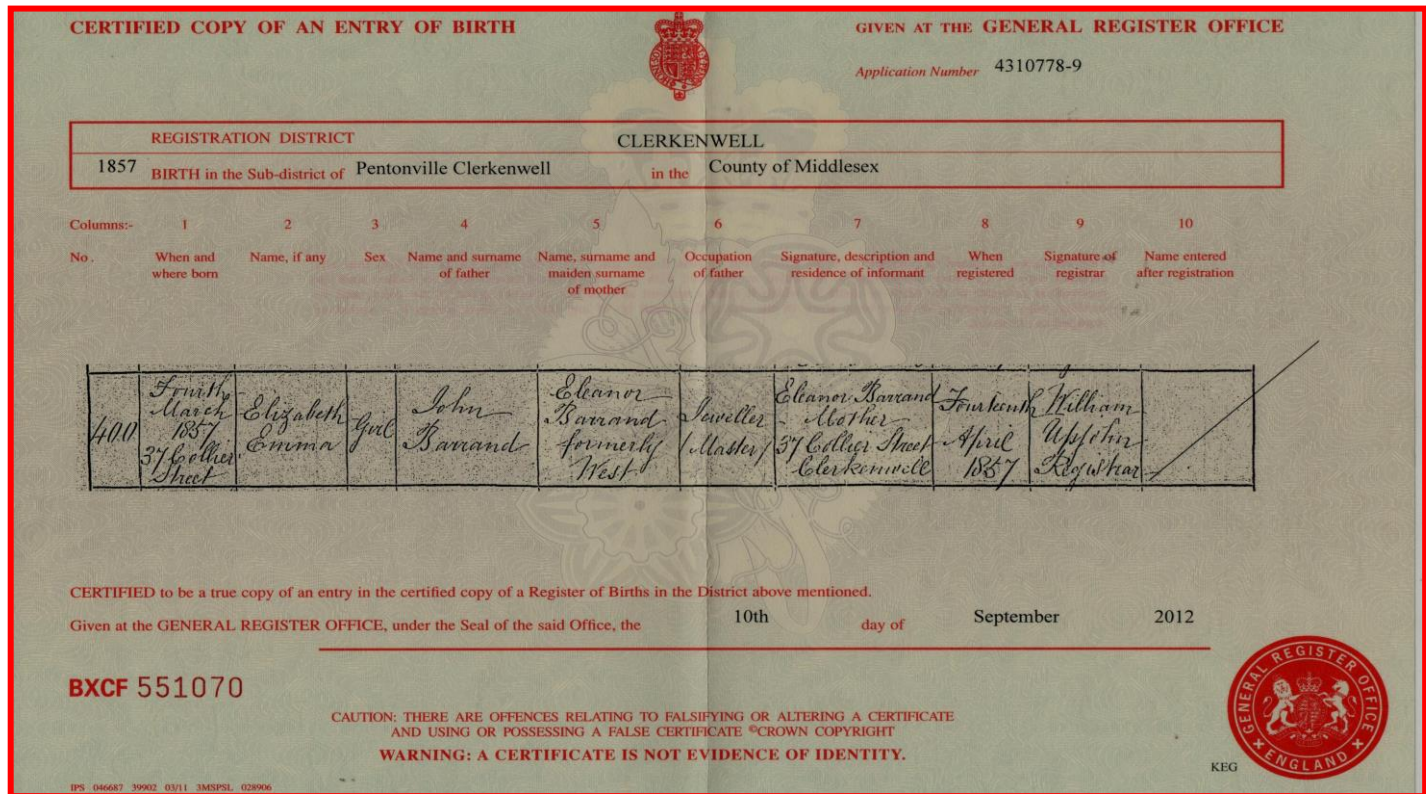 CERTIFIED COPY OF AN ENTRY OF BIRTH
GIVEN AT THE GENERAL REGISTER OFFICE
Application Number 4310778-9
REGISTRATION DISTRICT CLERKENWELL
1857 BIRTH in the Sub-district of Pentonville Clerkenwell in the County of Middlesex
Columns:- 1 2 3 4 5 6 7 8 9 10
No. When and where born Name, if any Sex Name and surname of father Name, surname and maiden surname of mother Occupation of father Signature, description and residence of informant When registered Signature of registrar Name entered after registration
400
Fourth
March
1857
37 Collier
Street
Elizabeth
Emma
Girl
John
Barrand
Eleanor
Barrand
formerly
West
Jeweller
(Master)
Eleanor Barrand
Mother
37 Collier Street
Clerkenwell
Fourteenth
April
1857
William
Upjohn
Registrar
CERTIFIED to be a true copy of an entry in the certified copy of a Register of Births in the District above mentioned.
Given at the GENERAL REGISTER OFFICE, under the Seal of the said Office, the 10th day of September 2012
BXCF 551070
CAUTION: THERE ARE OFFENCES RELATING TO FALSIFYING OR ALTERING A CERTIFICATE
AND USING OR POSSESSING A FALSE CERTIFICATE ©CROWN COPYRIGHT
WARNING: A CERTIFICATE IS NOT EVIDENCE OF IDENTITY.
GENERAL REGISTER OFFICE
ENGLAND
KEG
IPS 046687 39902 03/11 3MSPSL 028906